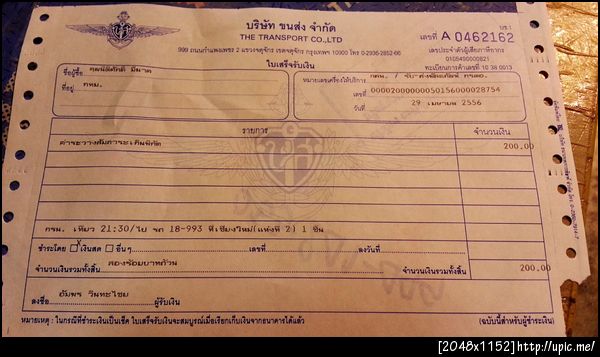 บขส.1
บริษัท ขนส่ง จำกัด
THE TRANSPORT CO.,LTD
เลขที่ A 0462162
999 ถนนกำแพงเพชร 2 แขวงจตุจักร เขตจตุจักร กรุงเทพฯ 10900 โทร 0-2936-2852-66
เลขประจำตัวผู้เสียภาษีอากร
0105490000821
ทะเบียนการค้าเลขที่ 10 38 0013
ใบเสร็จรับเงิน
ชื่อผู้ซื้อ
ที่อยู่ กทม.
หมายเลขเครื่องให้บริการ
เลขที่ 00002000000050156000028754
วันที่ 29 เมษายน 2556
รายการ
จำนวนเงิน
ค่าระวางสัมภาระเกินพิกัด 200.00
กรน. เที่ยว 21:30/ไป รถ 18-993 ที่เชียงใหม่(แห่งที่ 2) 1 ชิ้น
ชำระโดย X เงินสด อื่นๆ เลขที่ ลงวันที่
จำนวนเงินรวมทั้งสิ้น สองร้อยบาทถ้วน จำนวนเงินรวมทั้งสิ้น 200.00
ลงชื่อ อัมพร วินทะไชย ผู้รับเงิน
หมายเหตุ : ในกรณีที่ชำระเงินเป็นเช็ค ใบเสร็จรับเงินจะสมบูรณ์เมื่อเรียกเก็บเงินจากธนาคารได้แล้ว (ฉบับนี้สำหรับผู้ชำระเงิน)
[2048x1152]http://upic.me/